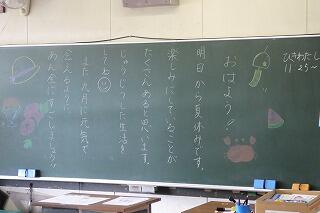 ひきわたし
11:25〜
おはよう!!
明日から夏休みです。
楽しみにしていることが
たくさんあると思います。
じゅうじつした生活を
してね
また九月に元気で
会えるように
あん全にすごしましょう!!